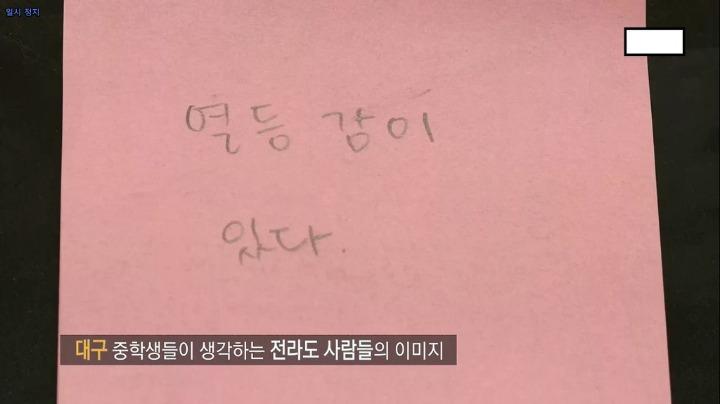 일시 정지
열등 감이
있다.
대구 중학생들이 생각하는 전라도 사람들의 이미지